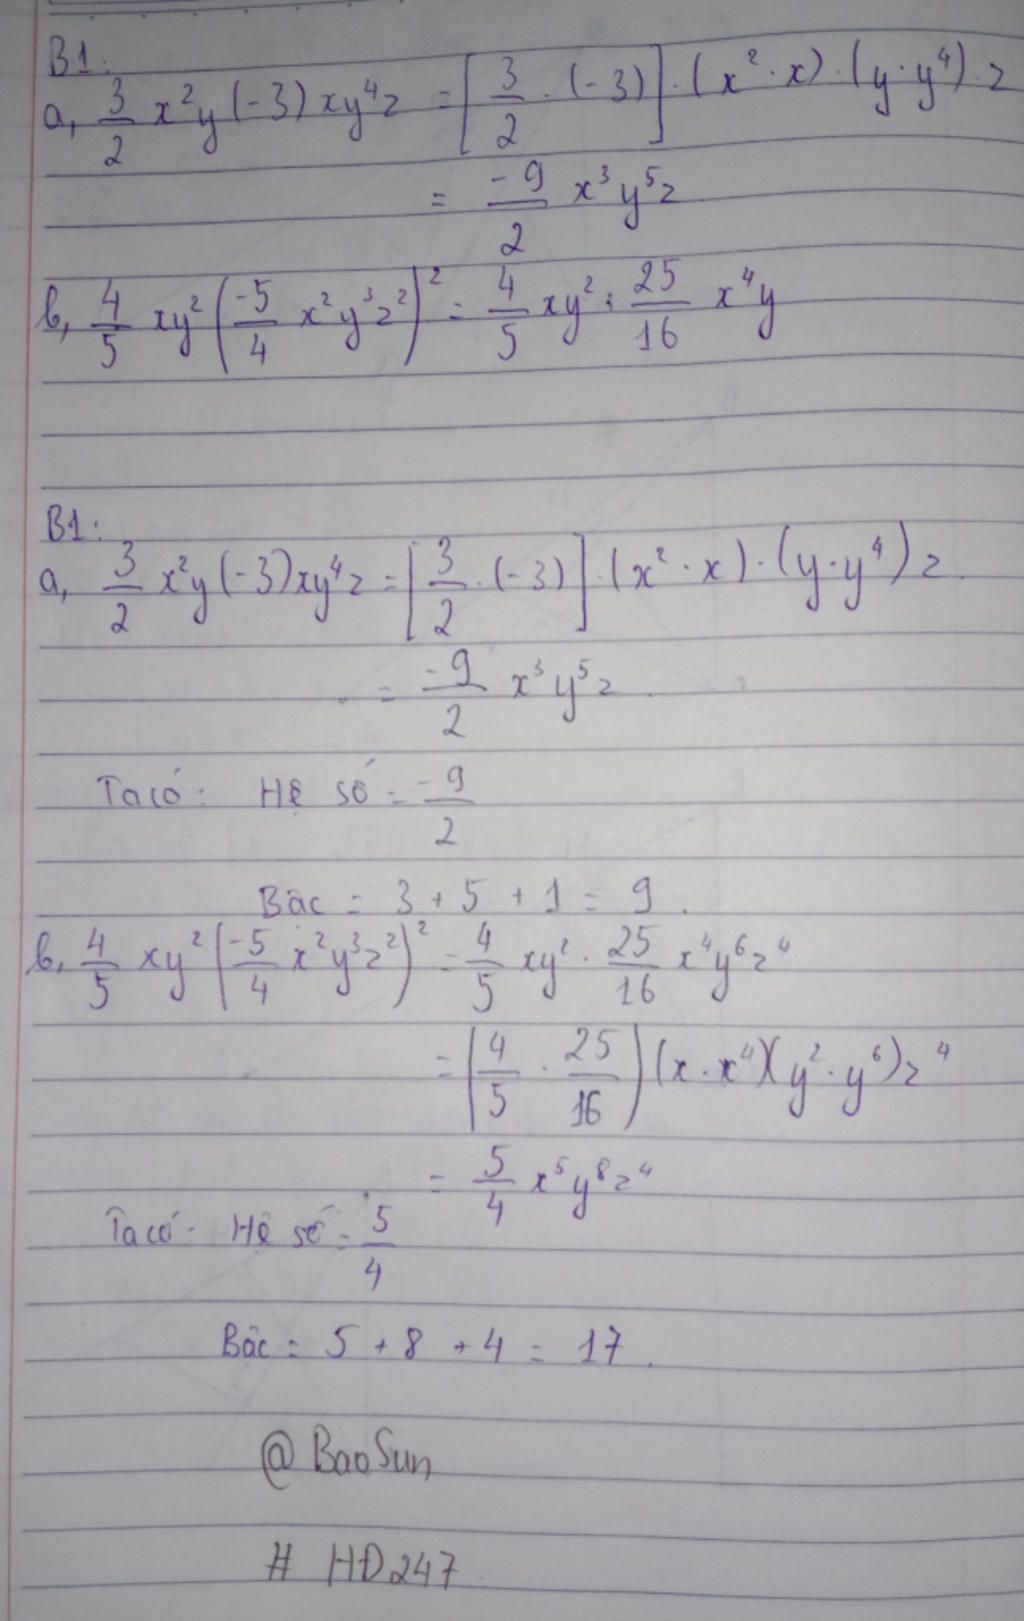 B1:
a, 3/2 x²y (-3) xy⁴z = [3/2 . (-3)] . (x² . x) . (y . y⁴) . z
= -9/2 x³y⁵z
b, 4/5 xy² (-5/4 x²y³z²)² = 4/5 xy² . 25/16 x⁴y
B1:
a, 3/2 x²y (-3) xy⁴z = [3/2 . (-3)] . (x² . x) . (y . y⁴) z.
= -9/2 x³y⁵z.
Ta có: Hệ số = -9/2
Bậc = 3 + 5 + 1 = 9.
b, 4/5 xy² (-5/4 x²y³z²)² = 4/5 xy² . 25/16 x⁴y⁶z⁴
= (4/5 . 25/16) (x . x⁴)(y² . y⁶) z⁴
= 5/4 x⁵y⁸z⁴
Ta có: Hệ số = 5/4
Bậc = 5 + 8 + 4 = 17.
@BaoSun
# HĐ247